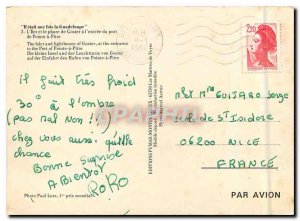 "Il était une fois la Guadeloupe"
L'îlet et le phare de Gosier à l'entrée du port
de Pointe-à-Pitre
The Islet and lighthouse of Gosier, at the entrance
to the Port of Pointe-à-Pitre
Die kleine Insel und der Leuchtturm von Gosier
auf der Einfahrt des Hafen von Pointe-à-Pitre
il fait très froid
30° à l'ombre
(pas mal non !!)
chez vous aussi. qu'elle
chance
Bonne Surprise
A Bientôt
PoRo
Photo Paul Lutz, 1er prix mondial
2,20
Mr Mme GUITARD Serge
rue de St Isidore
06200 NICE
FRANCE
PAR AVION